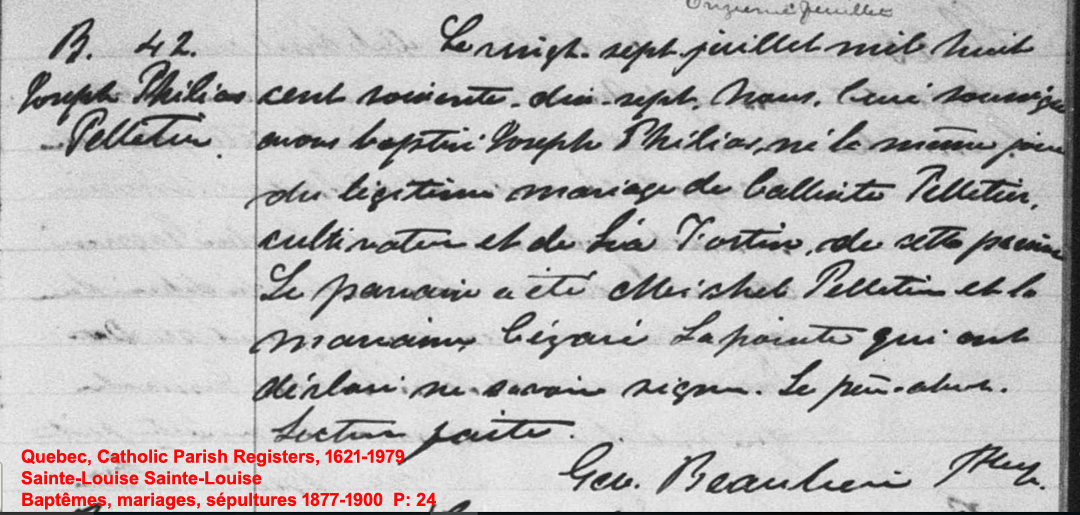 Onzième feuillet
B. 42.
Joseph Philias
Pelletier.
Le vingt-sept juillet mil huit
cent soixante-dix-sept, Nous, Curé soussigné
avons baptisé Joseph Philias, né le même jour
du légitime mariage de Callixte Pelletier,
cultivateur et de Léa Fortin, de cette paroisse
Le parrain a été Michel Pelletier et la
marraine, Cézarie Lapointe qui ont
déclaré ne savoir signer. Le père absent.
Lecture faite.
Beaulieu Ptre
Quebec, Catholic Parish Registers, 1621-1979
Sainte-Louise Sainte-Louise
Baptêmes, mariages, sépultures 1877-1900 P: 24